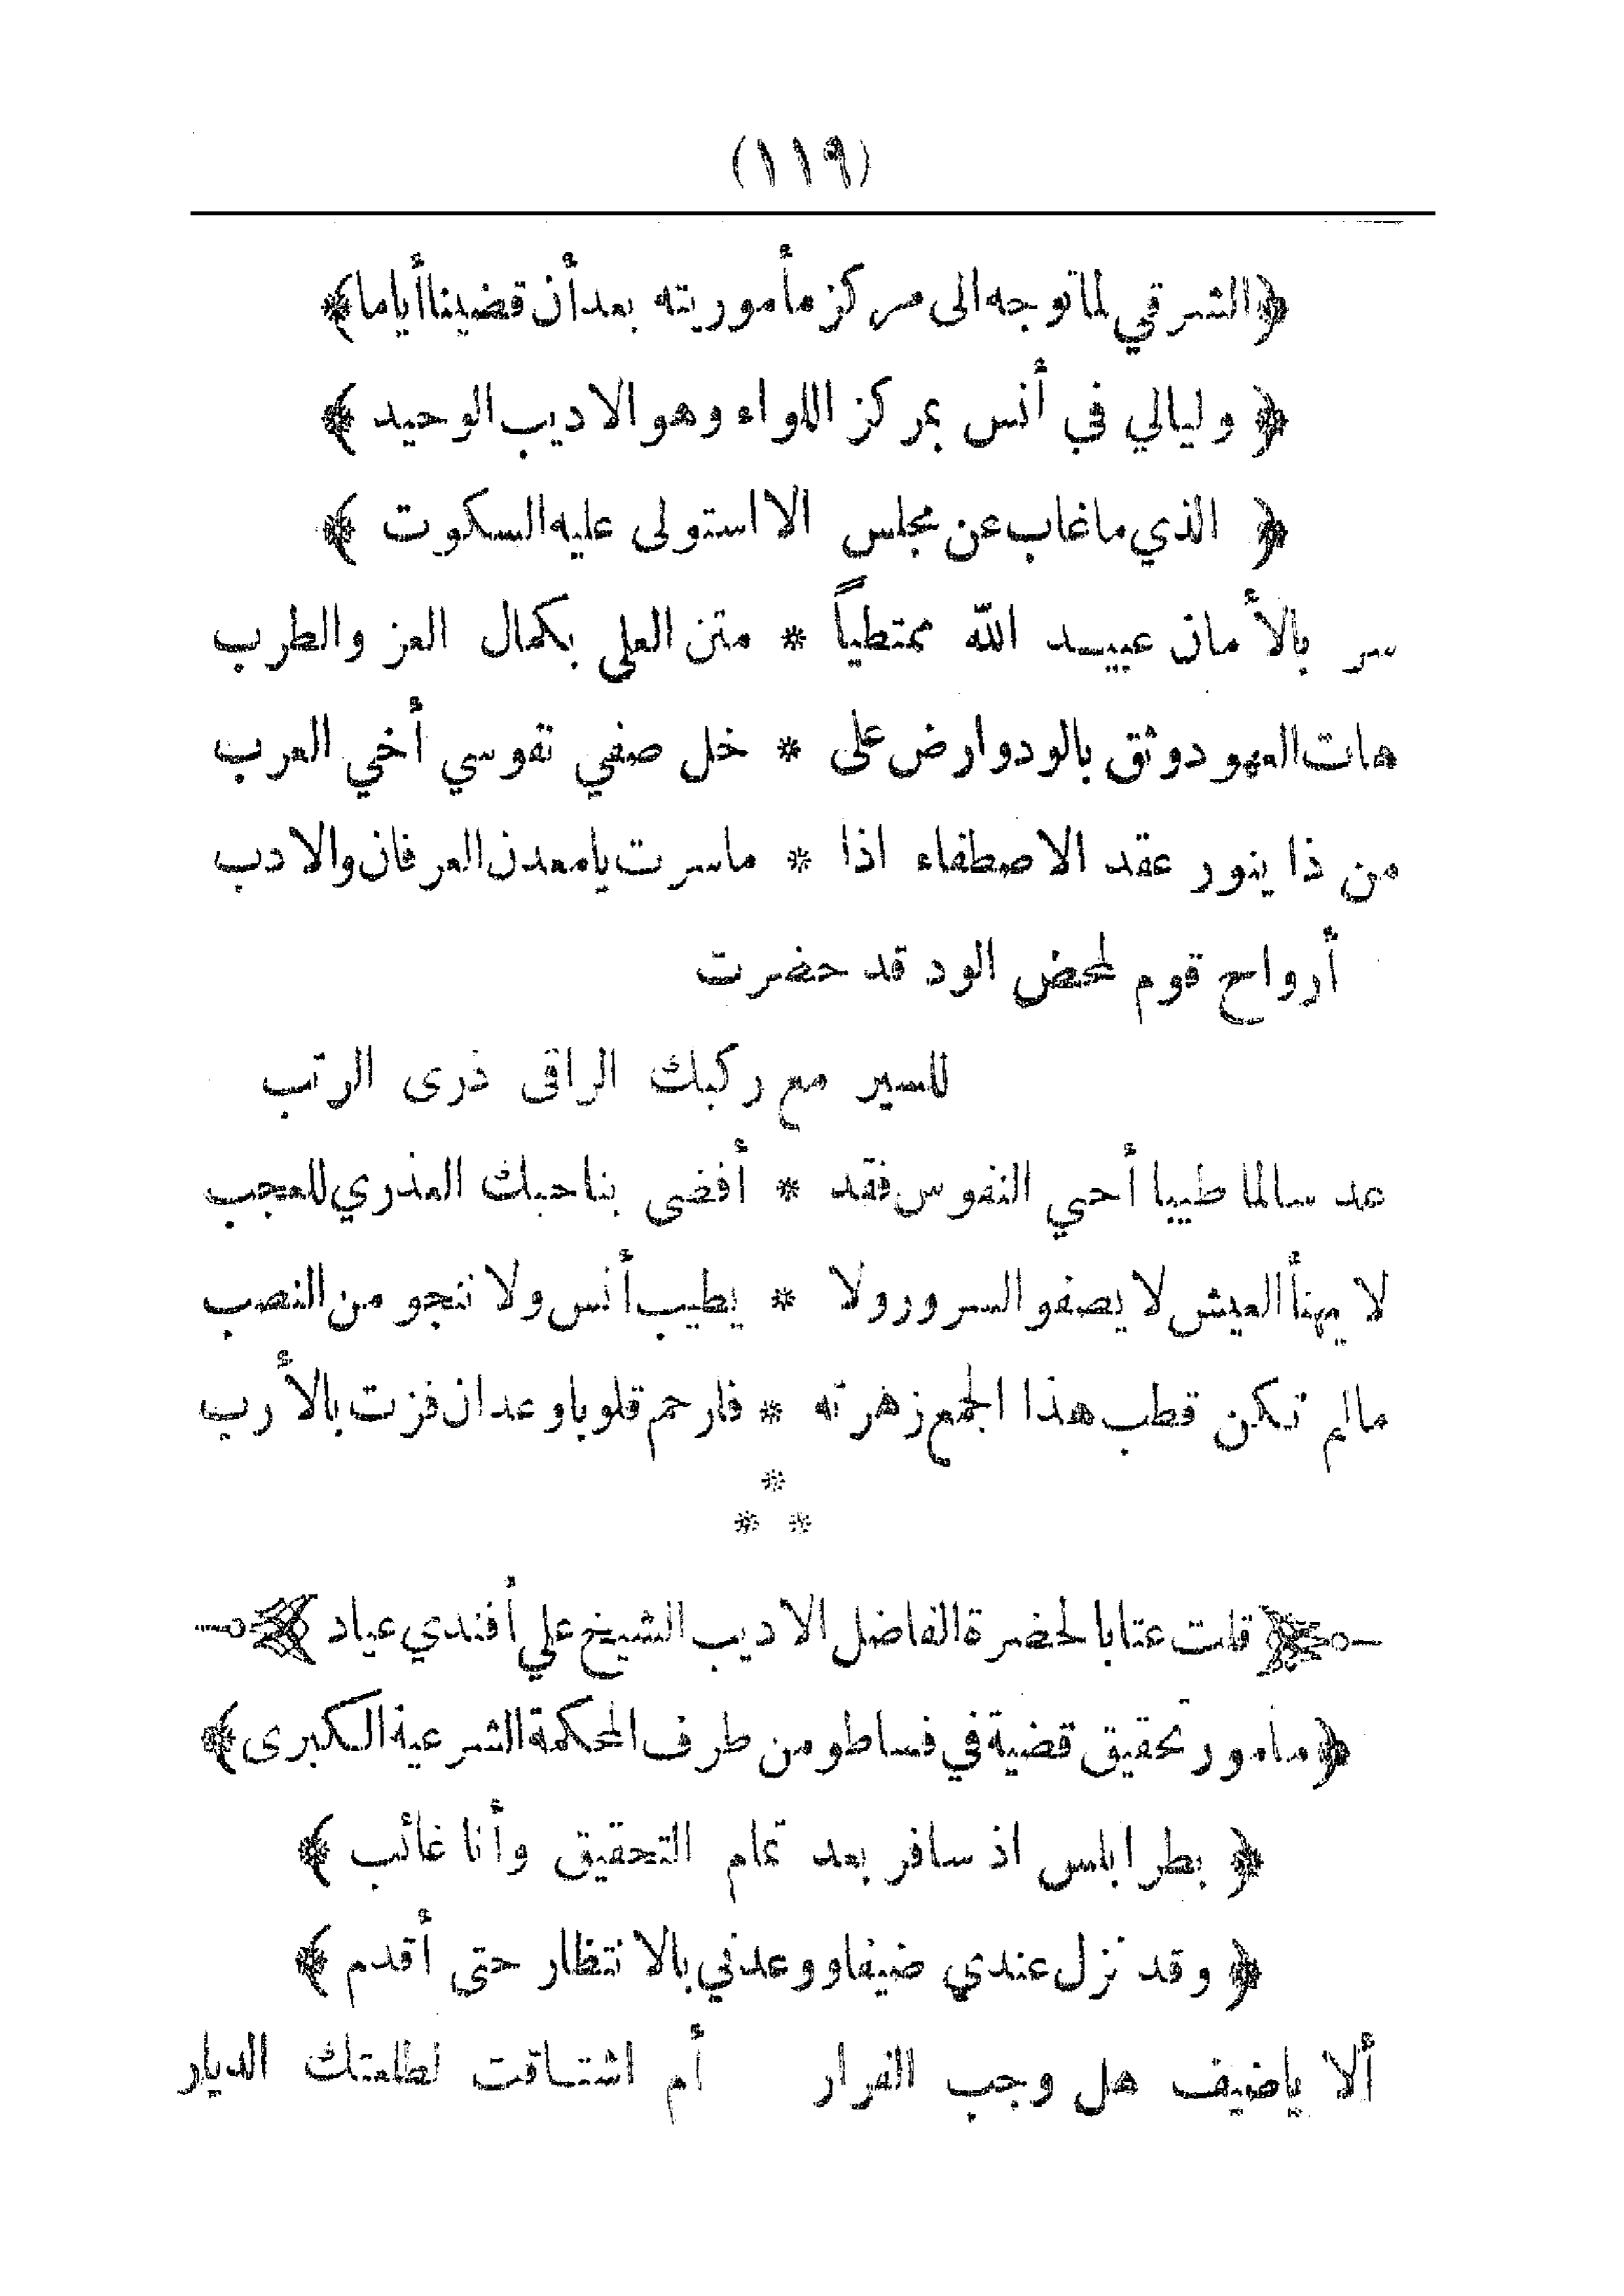 (١١٩)
﴿الشرقي لما توجه الى مركز مأموريته بعد أن قضينا أياما﴾
﴿ وليالي في أنس بمركز اللواء وهو الاديب الوحيد ﴾
﴿ الذي ما غاب عن مجلس الا استولى عليه السكوت ﴾
سر بالأمان عبيد الله ممتطياً * متن العلى بكمال العز والطرب
هات العهود وثق بالود وارض على * خل صفي تقوسي أخي العرب
من ذا ينور عقد الاصطفاء اذا * ما سرت يا معدن العرفان والادب
أرواح قوم لمحض الود قد حضرت
للسير مع ركبك الراقى ذرى الرتب
عد سالما طيبا أحي النفوس فقد * أفضى بنا حبك العذري للعجب
لا يهنأ العيش لا يصفو السرور ولا * يطيب أنس ولا ننجو من النصب
ما لم تكن قطب هذا الجمع زهرته * فارحم قلوبا وعد ان فزت بالأرب
*
* *
﴿ قلت عتابا لحضرة الفاضل الاديب الشيخ علي أفندي عياد ﴾
﴿ مأمور تحقيق قضية في فساطو من طرف المحكمة الشرعية الكبرى ﴾
﴿ بطرابلس اذ سافر بعد تمام التحقيق وأنا غائب ﴾
﴿ وقد نزل عندي ضيفا ووعدني بالانتظار حتى أقدم ﴾
ألا ياضيف هل وجب الفرار أم اشتاقت لطلعتك الديار